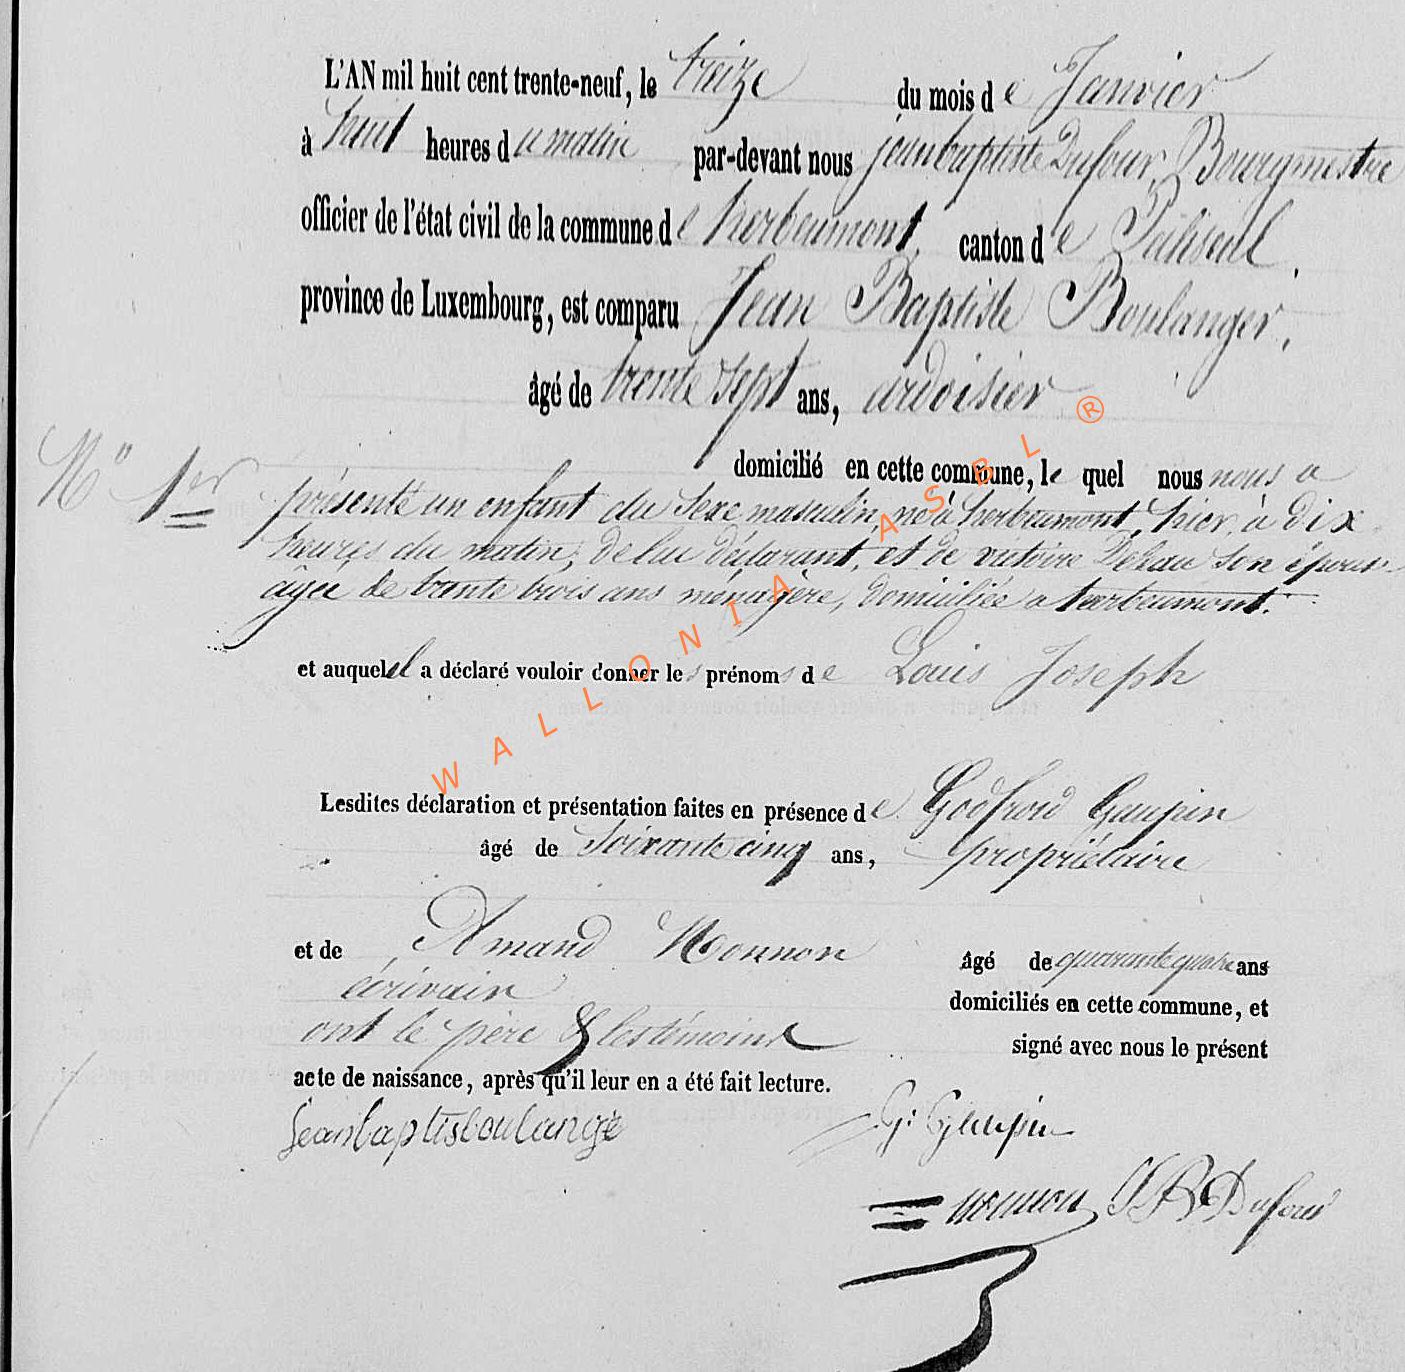 L'AN mil huit cent trente-neuf, le treize du mois de Janvier
à huit heures du matin par-devant nous jean baptiste Dufour, Bourgmestre
officier de l'état civil de la commune de herbeumont, canton de Paliseul,
province de Luxembourg, est comparu Jean Baptiste Boulanger,
âgé de trente sept ans, ardoisier
domicilié en cette commune, le quel nous nous a
N° 1er
présenté un enfant du Sexe masculin, né à herbeumont, hier, à dix
heures du matin, de lui déclarant, et de victoire son épouse
agée de trente trois ans ménagère, domiciliée a herbeumont.
et auquel il a déclaré vouloir donner les prénoms de Louis Joseph
Lesdites déclaration et présentation faites en présence de Godfroid Gaupin
âgé de Soixante cinq ans, propriétaire
et de Amand Monnon âgé de quarante quatre ans
écrivain
domiciliés en cette commune, et
ont le père & les témoins
signé avec nous le présent
acte de naissance, après qu'il leur en a été fait lecture.
Jean baptis boulangé
G: Gaupin
monnon JB Dufour
WALLONIA ASBL ®